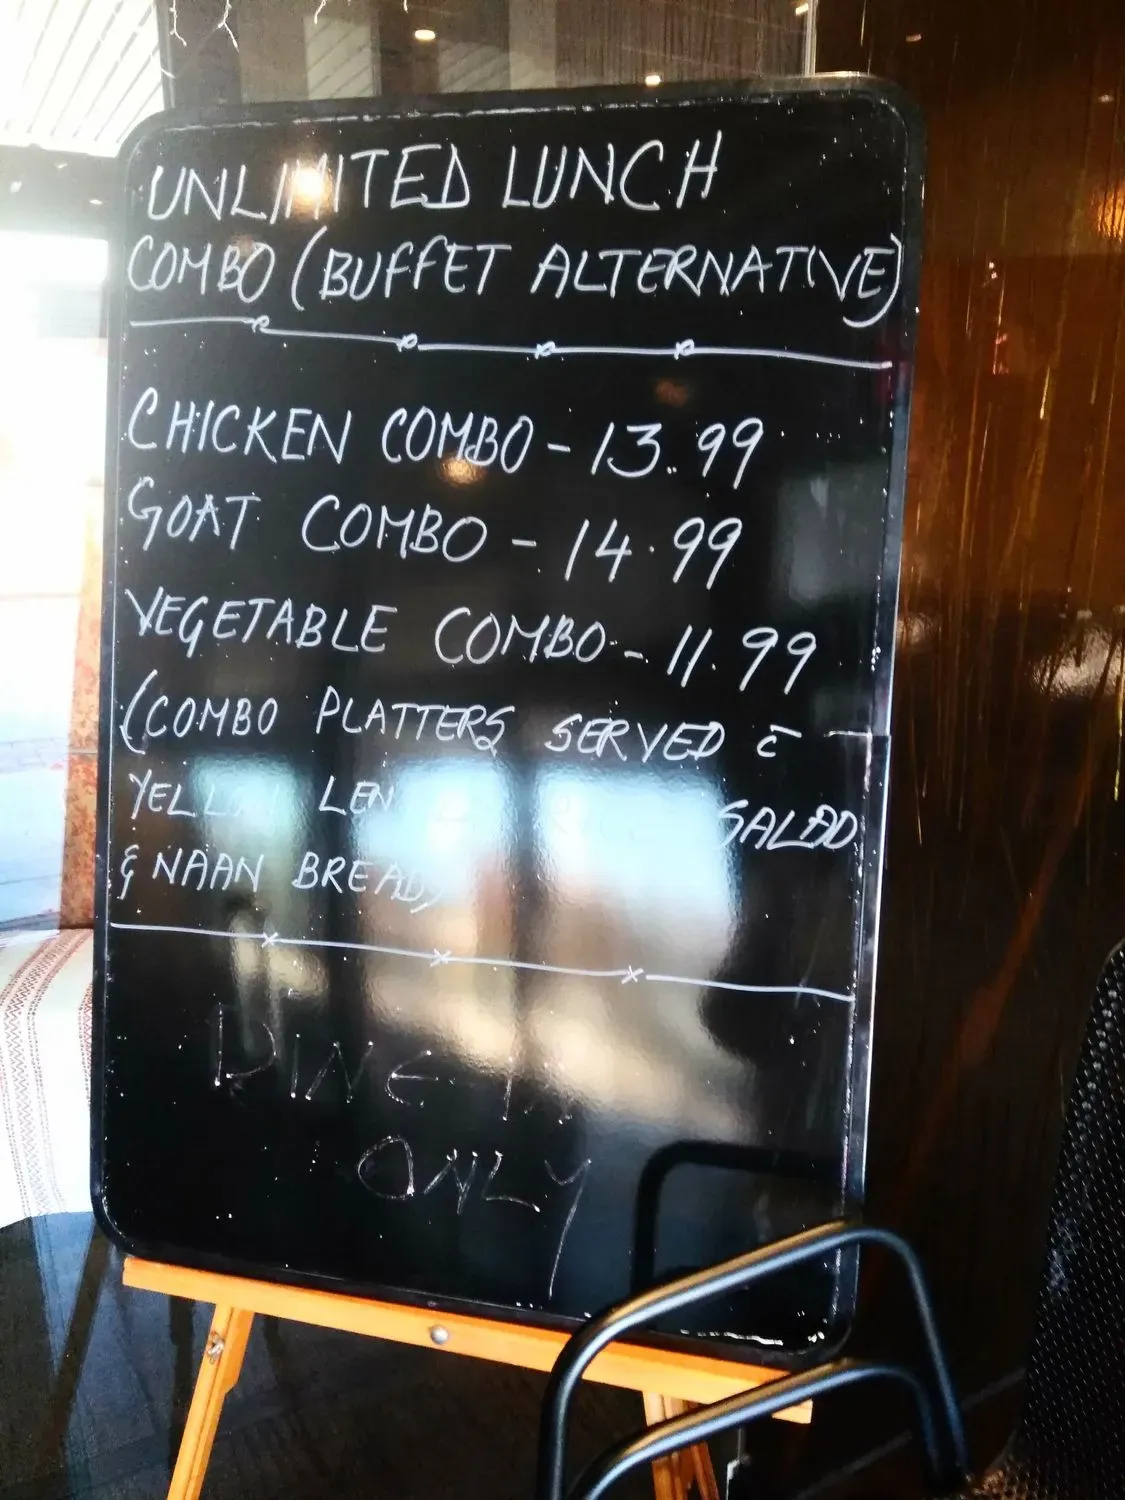 UNLIMITED LUNCH
COMBO (BUFFET ALTERNATIVE)
CHICKEN COMBO - 13.99
GOAT COMBO - 14.99
VEGETABLE COMBO - 11.99
(COMBO PLATTERS SERVED c̄
YELLOW SALAD
& NAAN BREAD)
DINE IN
ONLY